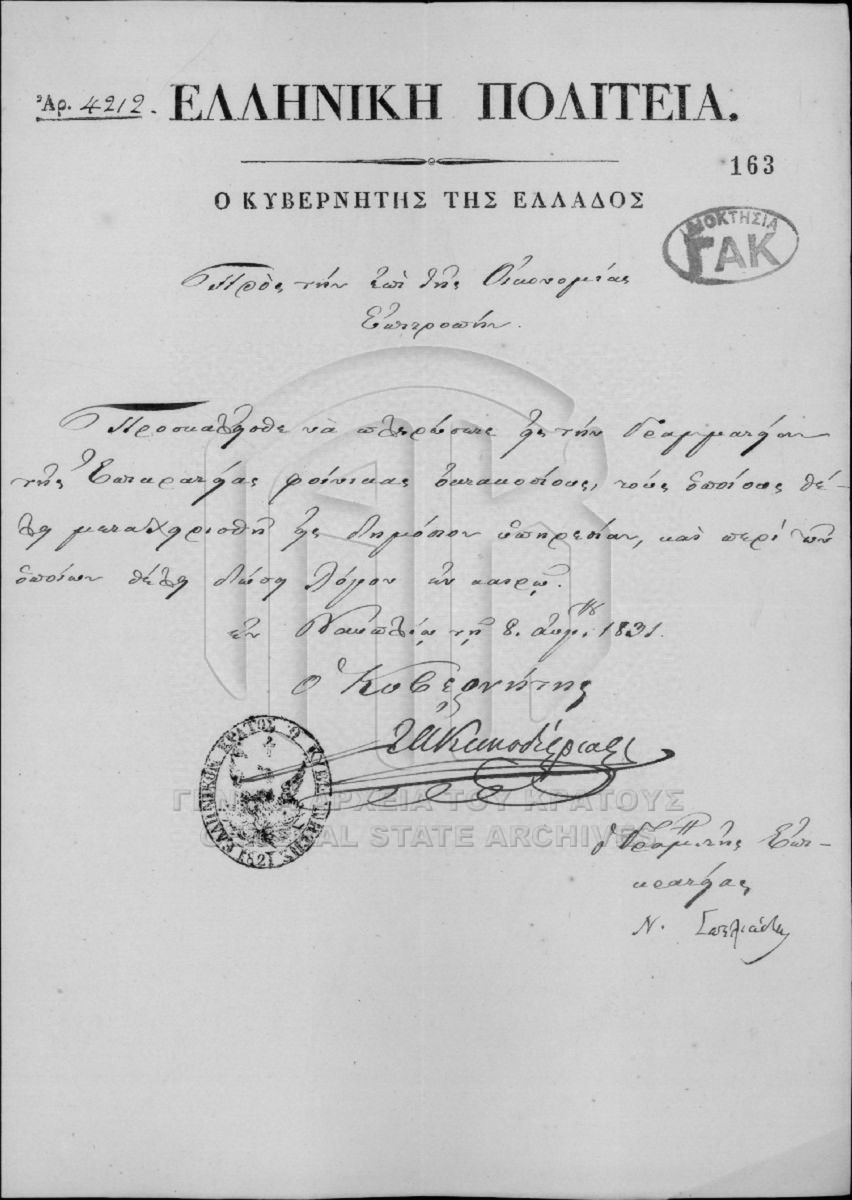 Ἀρ. 4212. ΕΛΛΗΝΙΚΗ ΠΟΛΙΤΕΙΑ.
163
Ο ΚΥΒΕΡΝΗΤΗΣ ΤΗΣ ΕΛΛΑΔΟΣ
ΙΔΙΟΚΤΗΣΙΑ
ΓΑΚ
Πρὸς τὴν ἐπὶ τῆς Οἰκονομίας
Ἐπιτροπήν.
Προσκαλεῖσθε νὰ πληρώσετε εἰς τὴν Γραμματείαν
τῆς Ἐπικρατείας φοίνικας ὀκτακοσίους, τοὺς ὁποίους θέ-
λει μεταχειρισθῆ εἰς δημόσιον ὑπηρεσίαν, καὶ περὶ τῶν
ὁποίων θέλει δώσει λόγον ἐν καιρῷ.
ἐν Ναυπλίῳ τῇ 8. αὐγ. 1831.
Ὁ Κυβερνήτης
ΙΑ Καποδίστριας
ΕΛΛΗΝΙΚΟΝ ΚΡΑΤΟΣ Ο ΚΥΒΕΡΝΗΤΗΣ 1821
ΓΕΝΙΚΑ ΑΡΧΕΙΑ ΤΟΥ ΚΡΑΤΟΥΣ
GENERAL STATE ARCHIVES
ὁ Γραμτεὺς Ἐπι-
κρατείας
Ν. Σπηλιάδης